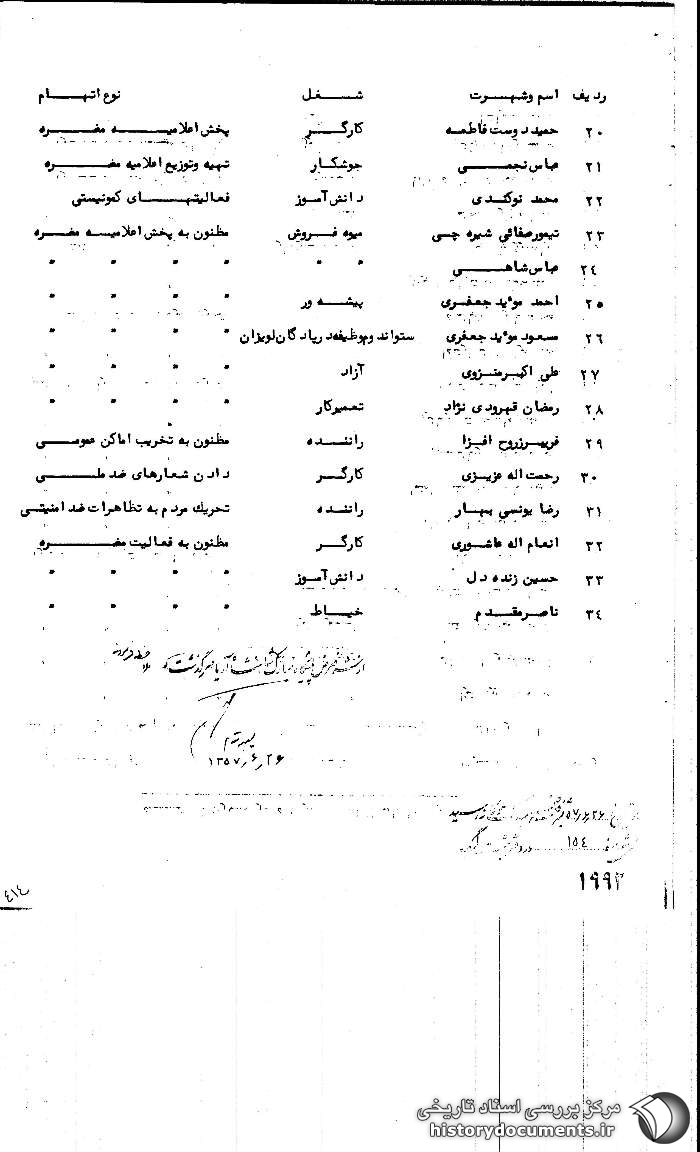 ردیف اسم وشهرت شغل نوع اتهام
۲۰ حمید دوست فاطمه کارگر پخش اعلامیه مضره
۲۱ عباس نجمی جوشکار تهیه وتوزیع اعلامیه مضره
۲۲ محمد نوکندی دانش آموز فعالیتهای کمونیستی
۲۳ تیمور صفائی شیره چی میوه فروش مظنون به پخش اعلامیه مضره
۲۴ عباس شاهی " " " " " "
۲۵ احمد موئید جعفری پیشه ور " " " "
۲۶ مسعود موئید جعفری ستواندوم وظیفه در پادگان لویزان " " " "
۲۷ علی اکبر منزوی آزاد " " " "
۲۸ رمضان قهرودی نژاد تعمیرکار " " " "
۲۹ فریبرز روح افزا راننده مظنون به تخریب اماکن عمومی
۳۰ رحمت اله عزیزی کارگر دادن شعارهای ضد ملی
۳۱ رضا یونسی بهار راننده تحریك مردم به تظاهرات ضد امنیتی
۳۲ انعام اله عاشوری کارگر مظنون به فعالیت مضره
۳۳ حسین زنده دل دانش آموز " " " "
۳۴ ناصر مقدم خیاط " " " "
از شرف عرض پیشگاه مبارک شاهنشاه آریامهر گذشت
۱۳۵۷٫۶٫۲۶
۱۵۴
۱۹۹۳
۴۱۴
مرکز بررسی اسناد تاریخی
historydocuments.ir